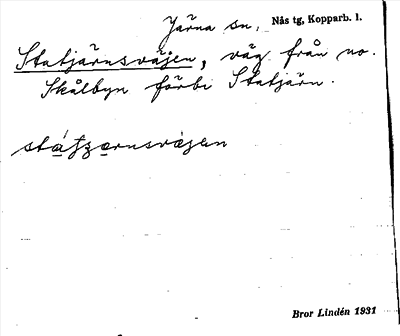 Järna sn, Nås tg, Kopparb. l.
Statjärnsväjen, väg från no.
Skålbyn förbi Statjärn.
Bror Lindén 1931